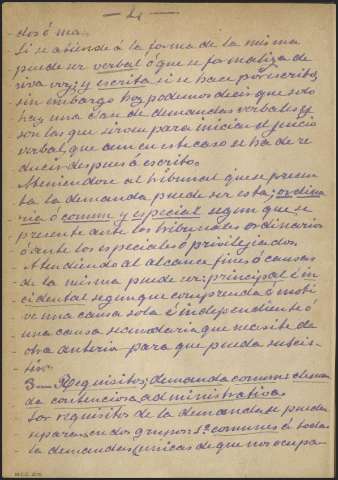 — 4 —
dos ó mas.
Si se atiende á la forma de la misma
puede ser verbal ó que se formaliza de
viva voz; y escrita si se hace por escrito,
sin embargo hoy podemos decir que solo
hay una clase de demandas verbales y
son las que sirven para iniciar el juicio
verbal, que aun en este caso se ha de re
ducir después á escrito.
Ateniendose al tribunal que se presen
ta la demanda puede ser esta; ordina
ria ó comun y especial segun que se
presente ante los tribunales ordinarios
ó ante los especiales ó privilejiados.
Atendiendo al alcance fines ó causas
de la misma puede ser: principal é in
cidental segun que comprenda ó moti
ve una causa sola é independiente ó
una causa secundaria que necesite de
otra anterior para que pueda subsis-
tir.
3— Requisitos; demanda comun: deman
da contencioso administrativa
Los requisitos de la demanda se pueden
separar en dos grupos: 1º comunes á todas
la demandas (unicas de que nos ocupa